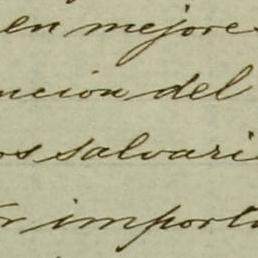 en mejore
ncion del
os salvari
r importa